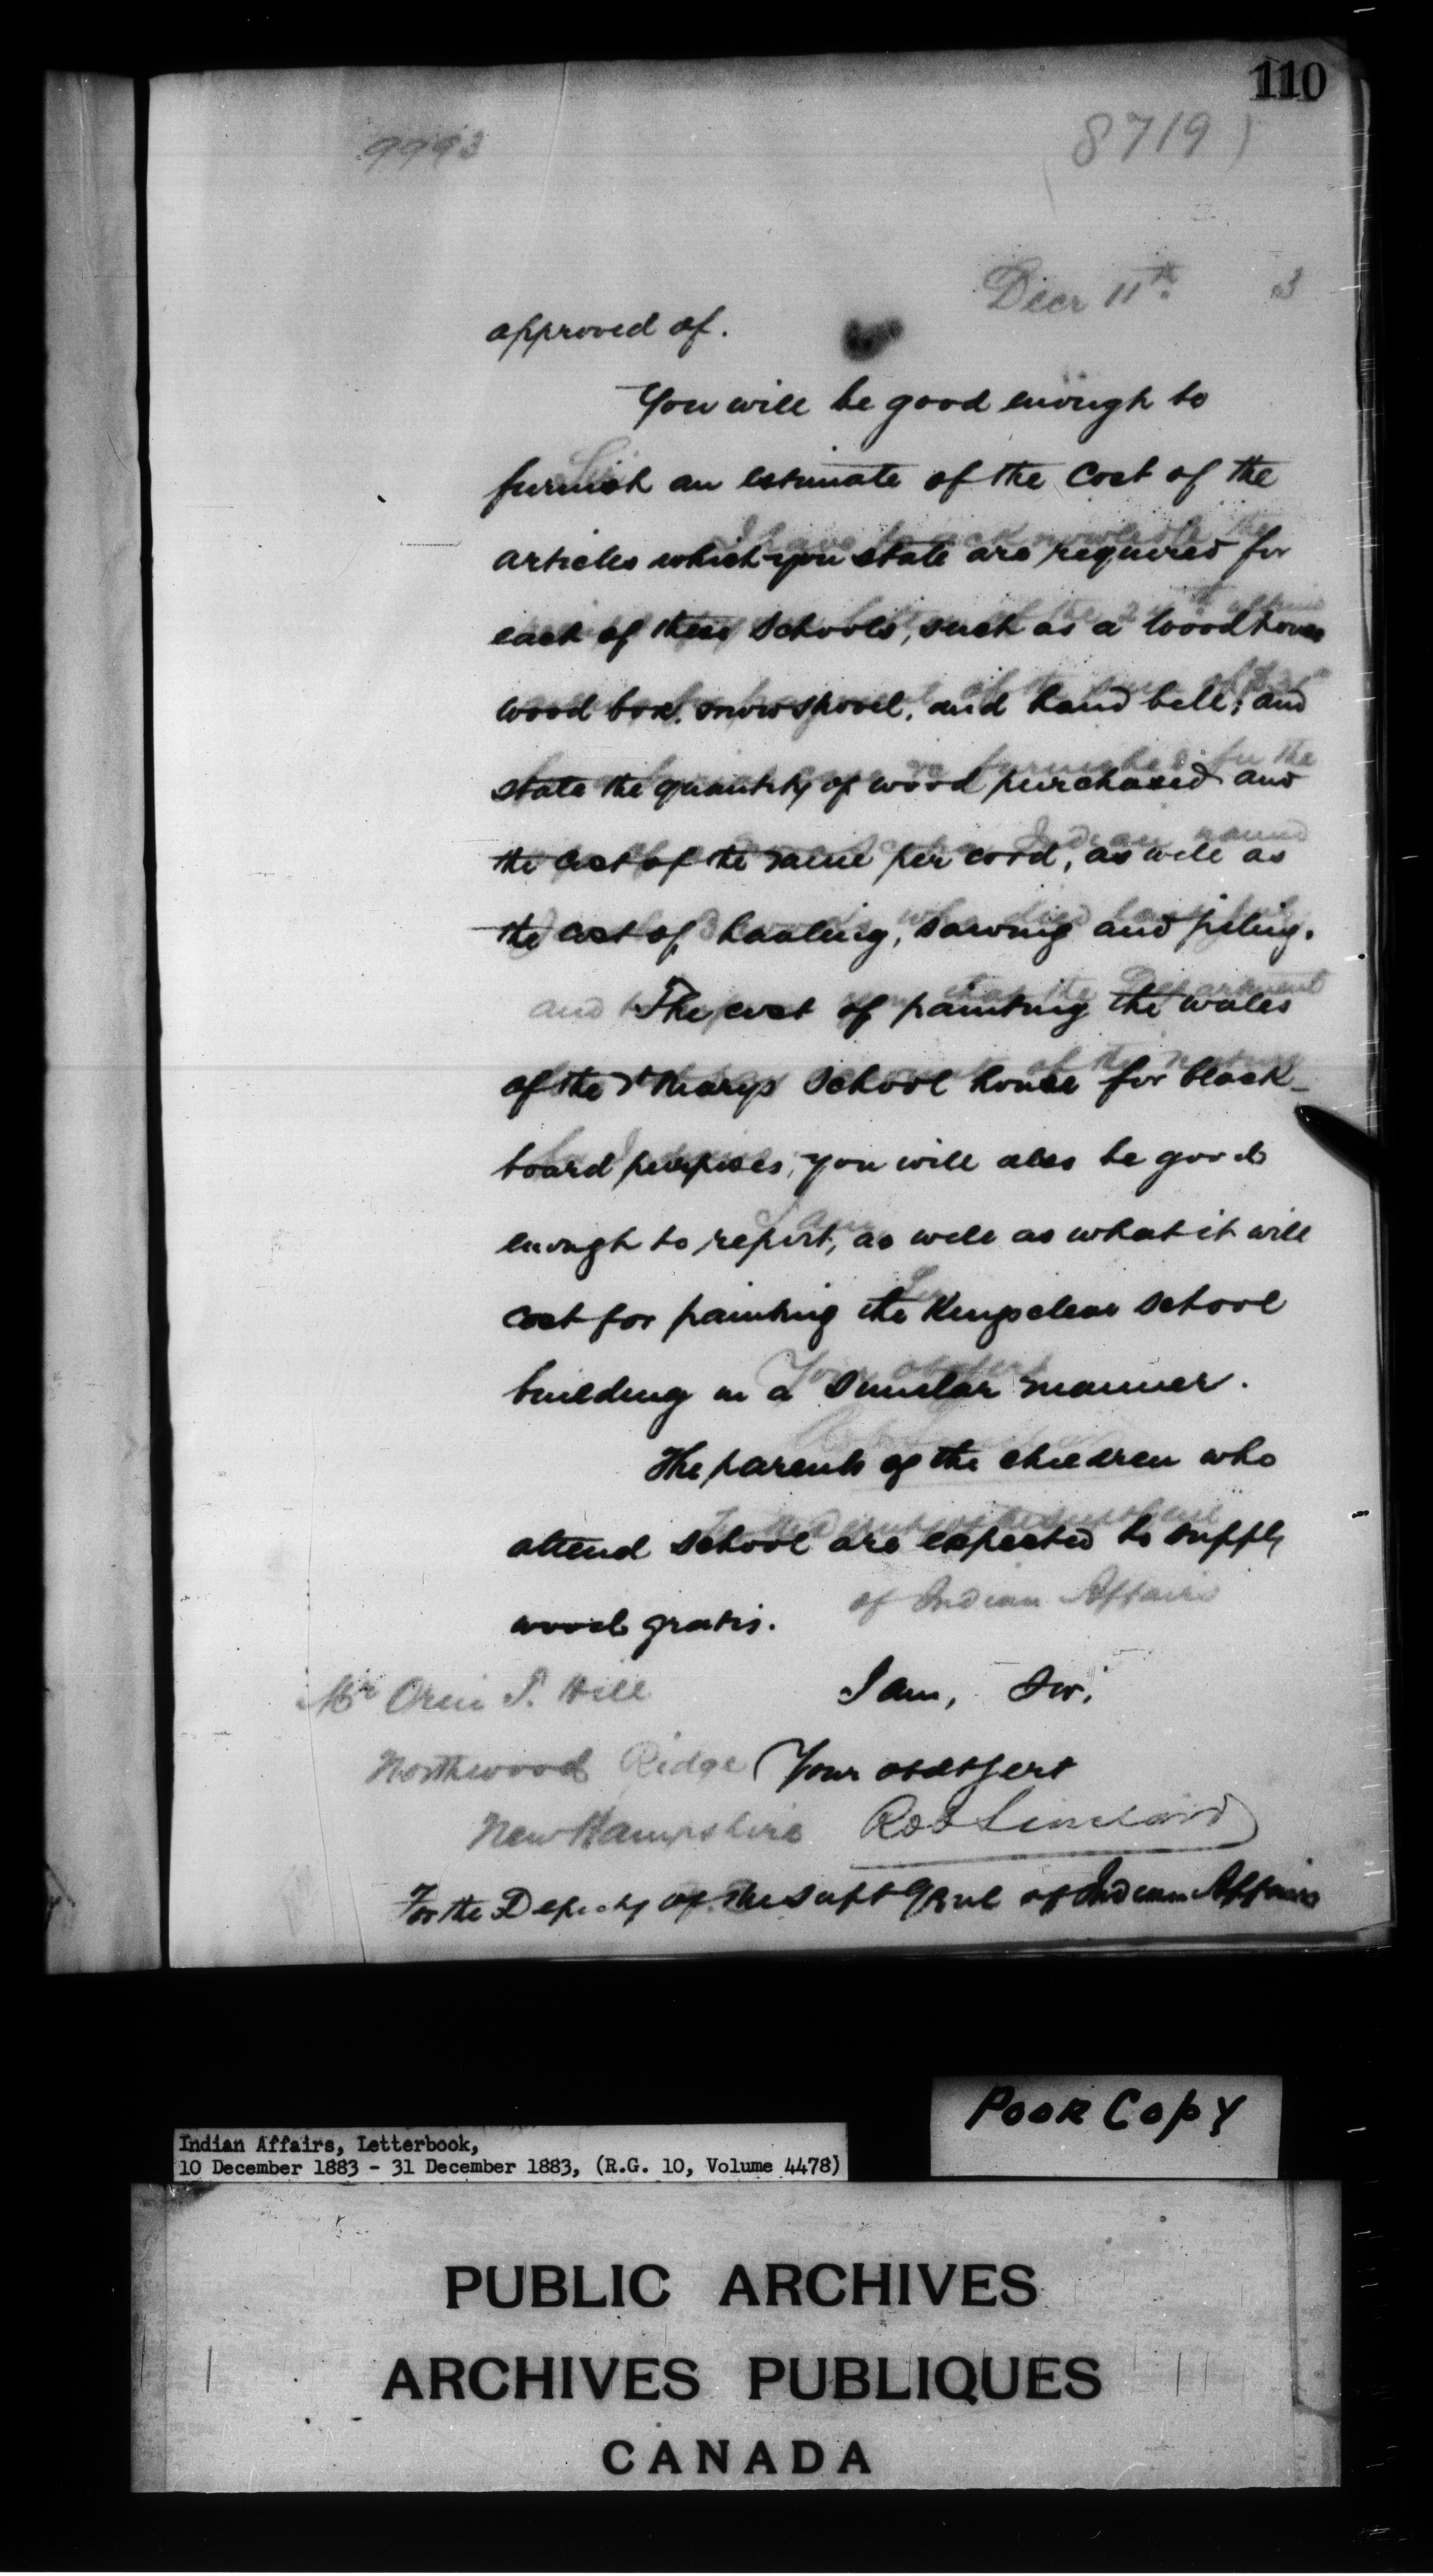 110
9993
8719
Decr 11th 3
approved of.
You will be good enough to
furnish an estimate of the cost of the
articles which you state are required for
each of these schools, such as a woodhouse
wood box, snow shovel, and hand bell; and
state the quantity of wood purchased and
the cost of the same per cord, as well as
the cost of hauling, sawing and piling.
The cost of painting the walls
of the St Marys School house for black-
board purposes, you will also be good
enough to report, as well as what it will
cost for painting the Kingsclear School
building in a similar manner.
The parents of the children who
attend school are expected to supply
wood gratis.
of Indian Affairs
I am, Sir,
Mr Orin T. Hill
Northwood Ridge
Your obdt Servt
New Hampshire
Rob Sinclair
For the Deputy of the Supt Genl of Indian Affairs
Poor Copy
Indian Affairs, Letterbook,
10 December 1883 - 31 December 1883, (R.G. 10, Volume 4478)
PUBLIC ARCHIVES
ARCHIVES PUBLIQUES
CANADA